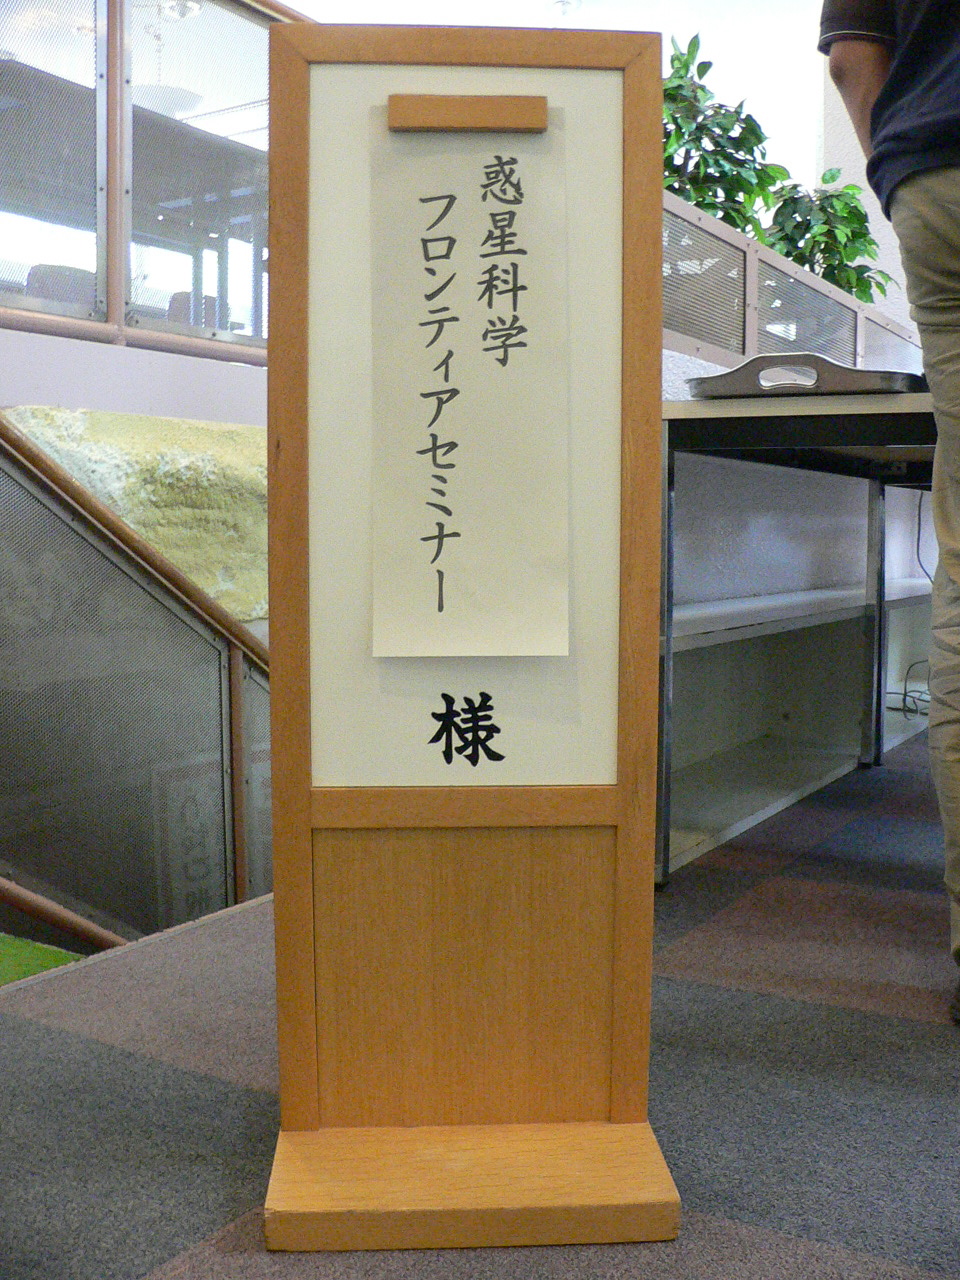 惑星科学
フロンティアセミナー
様